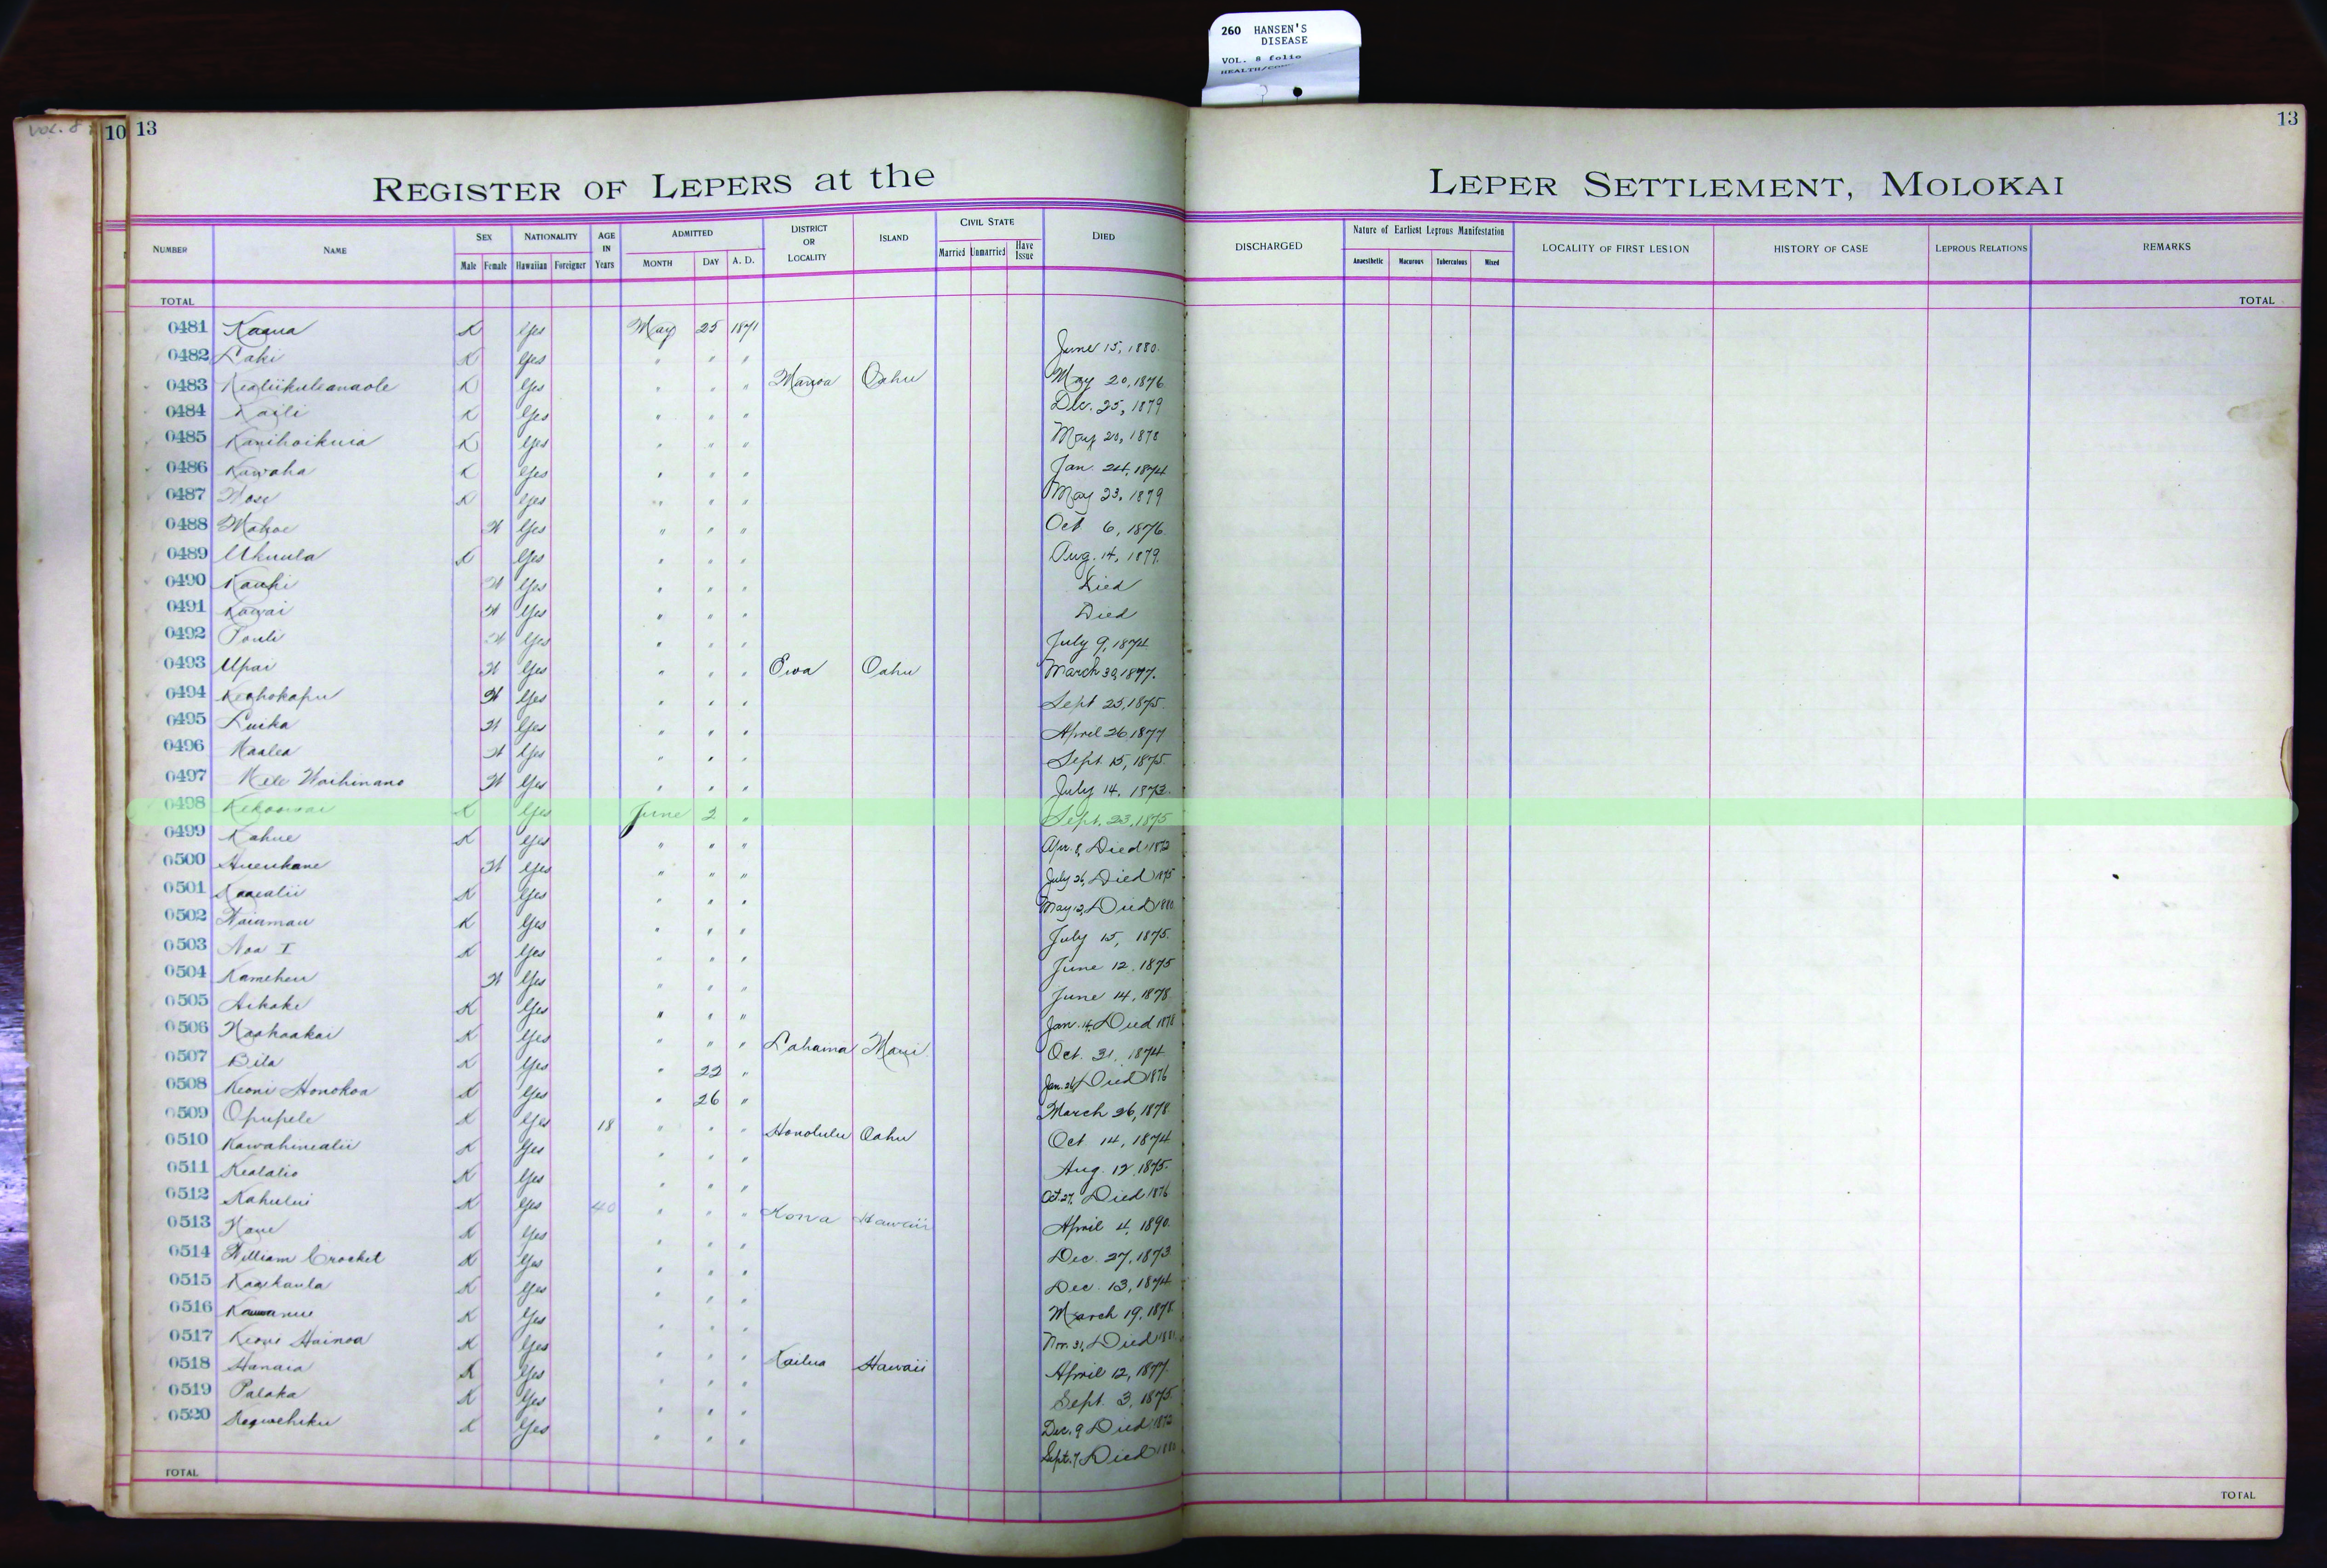 260 HANSEN'S
DISEASE
VOL. 8 folio
VOL. 8
10 13
13
REGISTER OF LEPERS at the LEPER SETTLEMENT, MOLOKAI
NUMBER NAME SEX Male Female NATIONALITY Hawaiian Foreigner AGE IN Years ADMITTED MONTH DAY A. D. DISTRICT OR LOCALITY ISLAND CIVIL STATE Married Unmarried Have Issue DIED DISCHARGED Nature of Earliest Leprous Manifestation Anaesthetic Macurous Tuberculous Mixed LOCALITY OF FIRST LESION HISTORY OF CASE LEPROUS RELATIONS REMARKS
TOTAL TOTAL
0481 Kaaua K Yes May 25 1871 June 15, 1880.
0482 Laki K Yes " " " May 20, 1876
0483 Kealiikuleanaole K Yes " " " Manoa Oahu Dec. 25, 1879
0484 Kaili K Yes " " " May 20, 1878
0485 Kanihoikuia K Yes " " " Jan. 24, 1874
0486 Kawaha K Yes " " " May 23, 1879
0487 K Yes " " " Oct 6, 1876.
0488 Mahoe W Yes " " " Aug. 14, 1879.
0489 Ukuula K Yes " " " Died
0490 Kauhi W Yes " " " Died
0491 Kawai W Yes " " " July 9, 1874
0492 Pauli W Yes " " " March 30, 1877.
0493 Upai W Yes " " " Ewa Oahu Sept 25, 1875.
0494 Keohokapu W Yes " " " April 26 1877
0495 Luika W Yes " " " Sept. 15, 1875.
0496 Maalea W Yes " " " July 14, 1873.
0497 Mele Waihinano W Yes " " "
0498 Kekoowai K Yes June 2 " Sept. 23, 1875
0499 Kahue K Yes " " " Apr. 8, Died 1872
0500 Hueukane W Yes " " " July 26, Died 1875
0501 Kaaealii K Yes " " " May 12, Died 1880
0502 Waiamau K Yes " " " July 15, 1875.
0503 Noa I K Yes " " " June 12, 1875
0504 Kameheu W Yes " " " June 14, 1878
0505 Aikake K Yes " " " Jan. 14, Died 1878
0506 Naahaakai K Yes " " " Lahaina Maui Oct. 31, 1874
0507 Bila K Yes " 22 " Jan. 26, Died 1876
0508 Keoni Honokoa K Yes " 26 " March 26, 1878
0509 Opupele K Yes 18 " " " Honolulu Oahu Oct 14, 1874
0510 Kawahinealii K Yes " " " Aug. 12, 1875.
0511 Kealalio K Yes " " " Oct. 27, Died 1876
0512 Kahului K Yes 40 " " " Kona Hawaii April 4, 1890.
0513 Kaue K Yes " " " Dec. 27, 1873
0514 William Crocket K Yes " " " Dec. 13, 1874
0515 Kaaekaula K Yes " " " March 19, 1878
0516 K Yes " " " Nov. 31, Died 1881
0517 Keoni Hainoa K Yes " " " Kailua Hawaii April 12, 1877.
0518 Hanaia K Yes " " " Sept. 3, 1875
0519 Palaka K Yes " " " Dec. 9 Died 1872
0520 K Yes " " " Sept. 7, Died 1880
TOTAL TOTAL